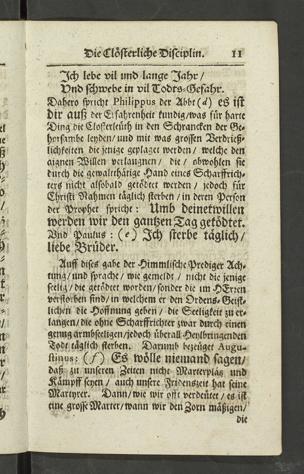 Die Clösterliche Disciplin. 11
Ich lebe vil und lange Jahr/
Vnd schwebe in vil Todts-Gefahr.
Dahero spricht Philippus der Abbt (d) es ist
dir auß der Erfahrenheit kundig/was für harte
Ding die Closterleüth in den Schrancken der Ge-
horsambe leyden/und mit was grossen Verdrieß-
lichkeiten die jenige geplaget werden/ welche den
aignen Willen verlaugnen/ die/ abwohlen sie
durch die gewalthätige Hand eines Scharffrich-
ters nicht alsobald getödtet werden/ jedoch für
Christi Nahmen täglich sterben/ in deren Person
der Prophet spricht: Umb deinetwillen
werden wir den gantzen Tag getödtet.
Vnd Paulus: (e) Ich sterbe täglich/
liebe Brüder.
Auff dises gabe der Himmlische Prediger Ach-
tung/und sprache/ wie gemeldt/ nicht die jenige
seelig/ die getödtet worden/sonder die im HErren
verstorben sind/in welchem er den Ordens-Geist-
lichen die Hoffnung geben/ die Seeligkeit zu er-
langen/die ohne Scharffrichter zwar durch einen
genug armbseeligen/jedoch überall-Heylbringenden
Todt täglich sterben. Darumb bezeüget Augu-
stinus: (f) Es wölle niemand sagen/
daß zu unseren Zeiten nicht Marterplätz und
Kämpff seyen/ auch unsere Fridenszeit hat seine
Martyrer. Dann/wie wir offt verdeütet/ es ist
eine grosse Marter/wann wir den Zorn mäßigen/
die